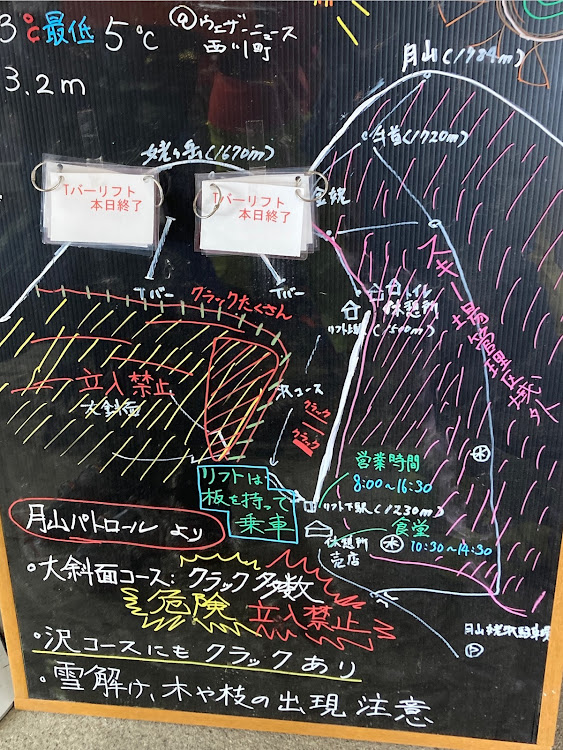 3℃ 最低 5℃
@ウェザーニュース
西川町
3.2m
月山(1984m)
牛首(1720m)
姥ヶ岳(1670m)
Tバーリフト
本日終了
Tバーリフト
本日終了
金姥
Tバー
Tバー
クラックたくさん
トイレ
休憩所
リフト上駅(1500m)
スキー場管理区域外
立入禁止
大斜面
沢コース
クラック
クラック
営業時間
8:00〜16:30
リフトは
板を持って
乗車
リフト下駅(1230m)
食堂
10:30〜14:30
休憩所
売店
水
水
月山パトロールより
•大斜面コース:クラック多数
危険 立入禁止
月山姥沢駐車場
P
•沢コースにもクラックあり
•雪解け、木や枝の出現 注意